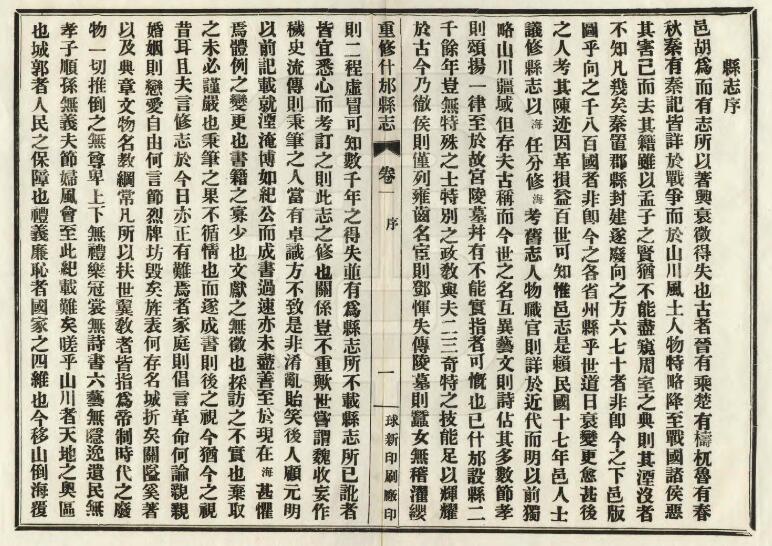 縣志序
邑胡爲而有志所以著興衰徵得失也古者晉有乘楚有檮杌魯有春
秋秦有秦記皆詳於戰爭而於山川風土人物特略降至戰國諸侯惡
其害己而去其籍雖以孟子之賢猶不能盡窺周室之典則其湮沒者
不知凡幾矣秦置郡縣封建遂廢向之方六七十者非卽今之下邑版
圖乎向之千八百國者非卽今之各省州縣乎世道日衰變更愈甚後
之人考其陳迹因革損益百世可知惟邑志是賴民國十七年邑人士
議修縣志以海任分修海考舊志人物職官則詳於近代而明以前獨
略山川疆域但存夫古稱而今世之名互異藝文則詩佔其多數節孝
則頌揚一律至於故宮陵墓并有不能實指者可慨也已什邡設縣二
千餘年豈無特殊之士特別之政敎與夫二三奇特之技能足以輝耀
於古今乃徹侯則僅列雍齒名宦則鄧惲失傳陵墓則蠶女無稽濯纓
重修什邡縣志 卷一 序 一 球新印刷廠印
則二程虛冒可知數千年之得失並有爲縣志所不載縣志所已訛者
皆宜悉心而考訂之則此志之修也關係豈不重歟世嘗謂魏收妄作
穢史流傳則秉筆之人當有卓識方不致是非淆亂貽笑後人顧元明
以前記載就湮淹博如紀公而成書過速亦未盡善至於現在海甚懼
焉體例之變更也書籍之寡少也文獻之無徵也採訪之不實也棄取
之未必謹嚴也秉筆之果不循情也而遂成書則後之視今猶今之視
昔耳且夫言修志於今日亦正有難焉者家庭則倡言革命何論親親
婚姻則戀愛自由何言節烈牌坊毀矣旌表何存名城折矣關隘奚著
以及典章文物名敎綱常凡所以扶世翼敎者皆指爲帝制時代之廢
物一切推倒之無尊卑上下無禮樂冠裳無詩書六藝無隱逸遺民無
孝子順孫無義夫節婦風會至此紀載難矣嗟乎山川者天地之奧區
也城郭者人民之保障也禮義廉恥者國家之四維也今移山倒海覆